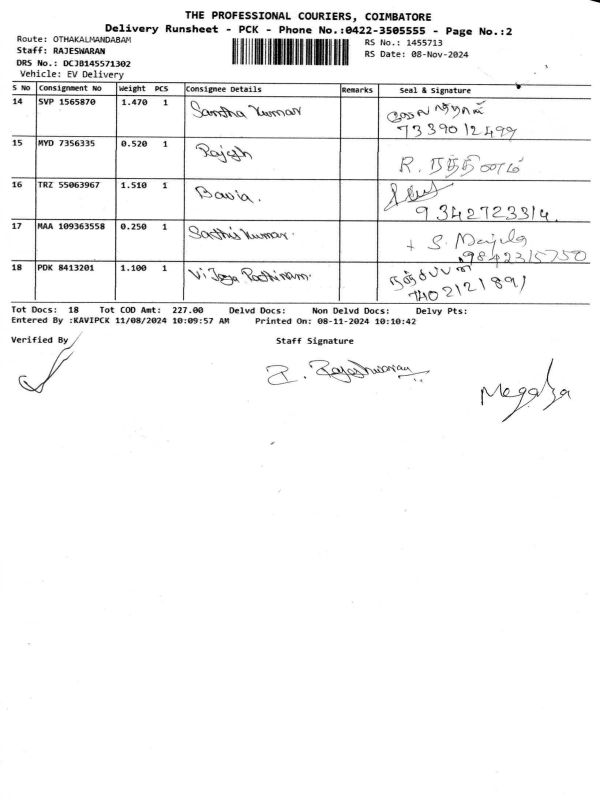 THE PROFESSIONAL COURIERS, COIMBATORE
Delivery Runsheet - PCK - Phone No.:0422-3505555 - Page No.:2
Route: OTHAKALMANDABAM
RS No.: 1455713
Staff: RAJESWARAN
RS Date: 08-Nov-2024
DRS No.: DCJB145571302
Vehicle: EV Delivery
S No Consignment No Weight PCS Consignee Details Remarks Seal & Signature
14 SVP 1565870 1.470 1 Santha Kumar
7339012499
15 MYD 7356335 0.520 1 Rajesh R.
16 TRZ 55063967 1.510 1 Bavia.
9342723314.
17 MAA 109363558 0.250 1 Sathis Kumar. S.
9842315750
18 PDK 8413201 1.100 1 Vijaya
7402121891
Tot Docs: 18 Tot COD Amt: 227.00 Delvd Docs: Non Delvd Docs: Delvy Pts:
Entered By :KAVIPCK 11/08/2024 10:09:57 AM Printed On: 08-11-2024 10:10:42
Verified By Staff Signature
R. Rajeshwaran